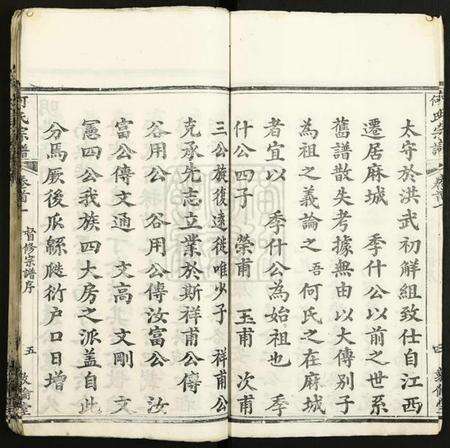 何氏宗譜
卷首
太守於洪武初解組致仕自江西
遷居麻城 季什公以前之世系
舊譜散失考據無由以大傳別子
為祖之義論之 吾何氏之在麻城
者宜以 季什公為始祖也 季
什公四子 榮甫 玉甫 次甫
三公族復遠徙唯少子 祥甫公
克承先志立業於斯祥甫公傳
谷用公 谷用公傳汝富公 汝
富公傳文通 文高 文剛 文
憲四公我族四大房之派蓋自此
分焉厥後瓜緜瓞衍户口日增
何氏宗譜
卷首
督修宗譜序
五
敦倫堂